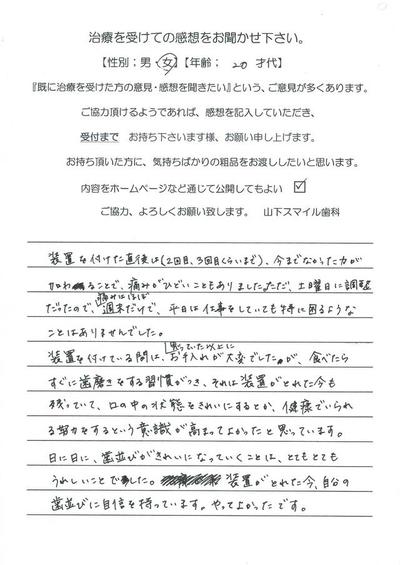 治療を受けての感想をお聞かせ下さい。
【性別：男・女】【年齢： 20 才代】
『既に治療を受けた方の意見・感想を聞きたい』という、ご意見が多くあります。
ご協力頂けるようであれば、感想を記入していただき、
受付まで お持ち下さいます様、お願い申し上げます。
お持ち頂いた方に、気持ちばかりの粗品をお渡ししたいと思います。
内容をホームページなど通じて公開してもよい ☑
ご協力、よろしくお願い致します。 山下スマイル歯科
装置を付けた直後は(2回目、3回目くらいまで)、今までなかった力が
加わることで、痛みがひどいこともありました。ただ、土曜日に調整
だったので、痛みはほぼ週末だけで、平日は仕事をしていても特に困るような
ことはありませんでした。
装置を付けている間は、思っていた以上にお手入れが大変でしたが、食べたら
すぐに歯磨きをする習慣がつき、それは装置がとれた今も
残っていて、口の中の状態をきれいにするとか、健康でいられ
る努力をするという意識が高まってよかったと思っています。
日に日に、歯並びがきれいになっていくことは、とてもとても
うれしいことでした。装置がとれた今、自分の
歯並びに自信を持っています。やってよかったです。